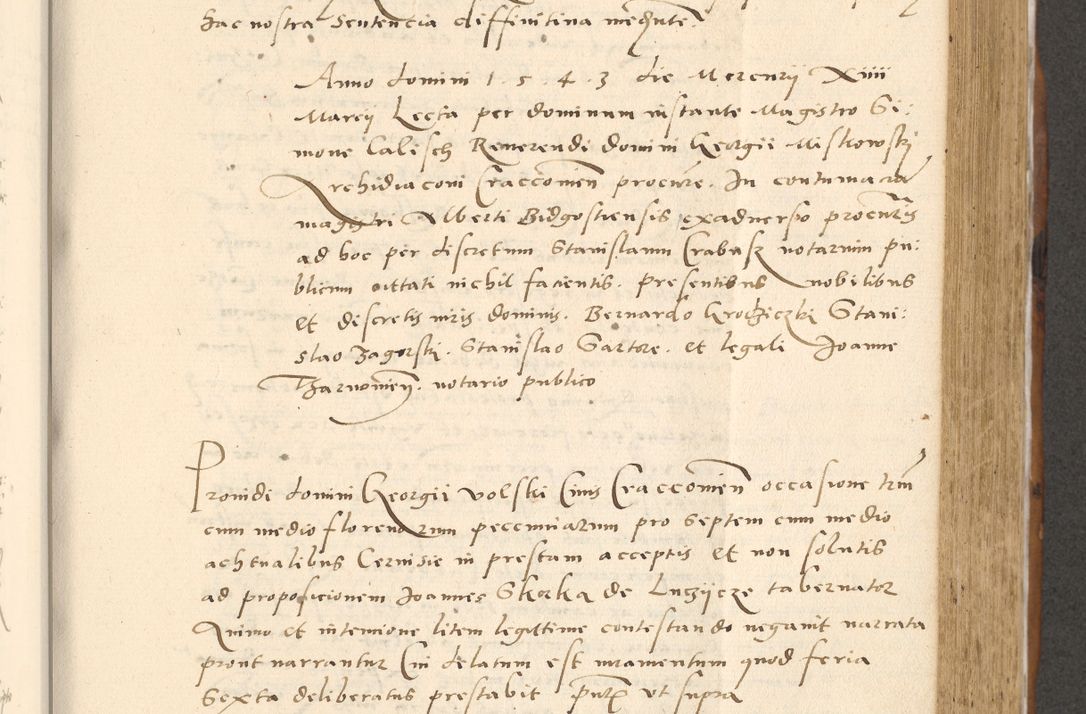 hac nostra Sententia diffinitiva mediante.
Anno domini 1 . 5 . 4 . 3 die Mercurij XIIII
Marcij Lecta per dominum instante Magistro Si:
mone Calisch Reuerendi domini Georgii Miskowski
Archidiaconi Craccouien procure . In contumacia
magistri Alberti Bidgostiensis exaduerso procuris
ad hoc per discretum Stanislaum Crabasz notarium pu:
blicum cittati nichil facientis . presentibus nobilibus
et discretis viris dominis . Bernardo Krodziczki Stani:
slao Zagorski . Stanislao Sartore . et legali Joanne
Tharnouien . notario publico
Prouidi domini Georgii Volski Ciuis Craccouien occasione trium
cum medio florenorum peccuniarum pro septem cum medio
achtualibus Ceruisie in prestam acceptis et non solutis
ad proposicionem Joannes Skorka de Luczijcze tabernator
Animo et intencione litem legittime contestando negauit narrata
prout narrantur Cui delatum est iuramentum quod feria
Sexta deliberatus prestabit pntibus ut supra